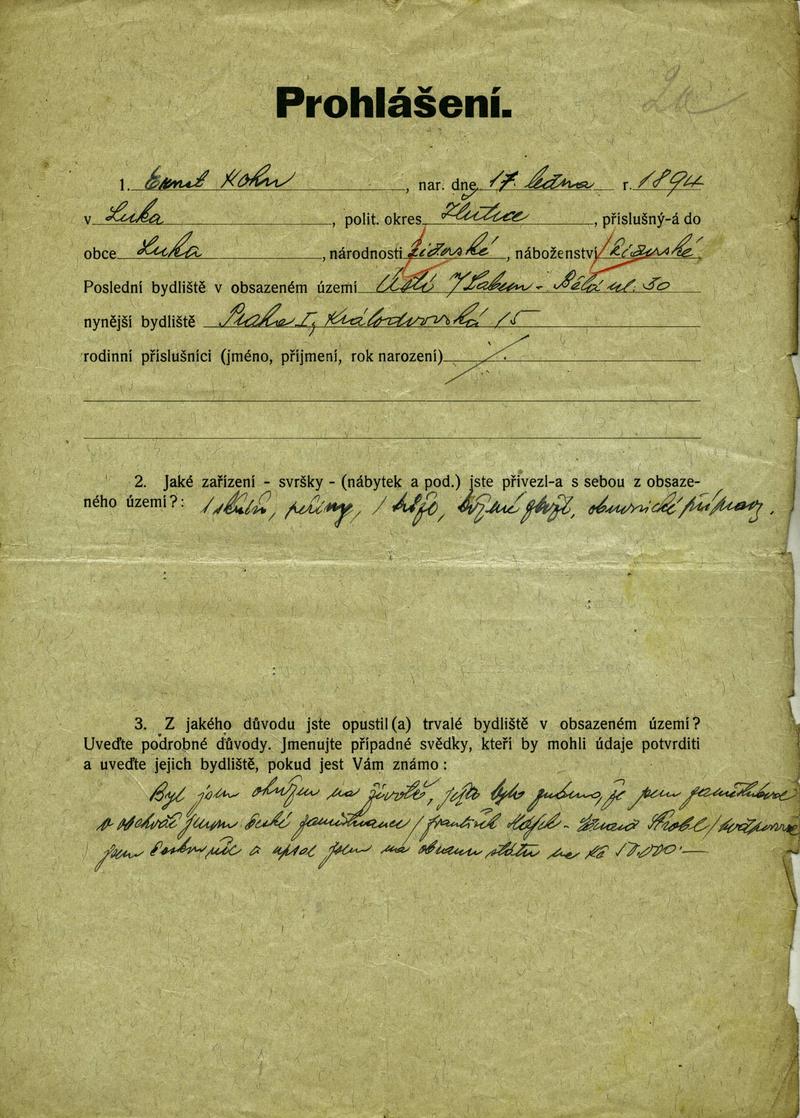 2a
Prohlášení.
1. Ernst Kohn, nar. dne 17. ledna r. 1894
v Luka, polit. okres Žlutice, příslušný-á do
obce Luka, národnosti židovské, náboženství židovské.
Poslední bydliště v obsazeném území Ústí n/Labem - Bělá ul. 30
nynější bydliště Praha I, Králodvorská 15
rodinní příslušníci (jméno, příjmení, rok narození)
2. Jaké zařízení - svršky - (nábytek a pod.) jste přivezl-a s sebou z obsaze-
ného území?: 1 skříň, peřiny, 1
3. Z jakého důvodu jste opustil(a) trvalé bydliště v obsazeném území?
Uveďte podrobné důvody. Jmenujte případné svědky, kteří by mohli údaje potvrditi
a uveďte jejich bydliště, pokud jest Vám známo:
Byl jsem ohrožen na životě, že jsem zaměstnával
jsem české zaměstnance / František
jsem a upsal jsem na obranu státu